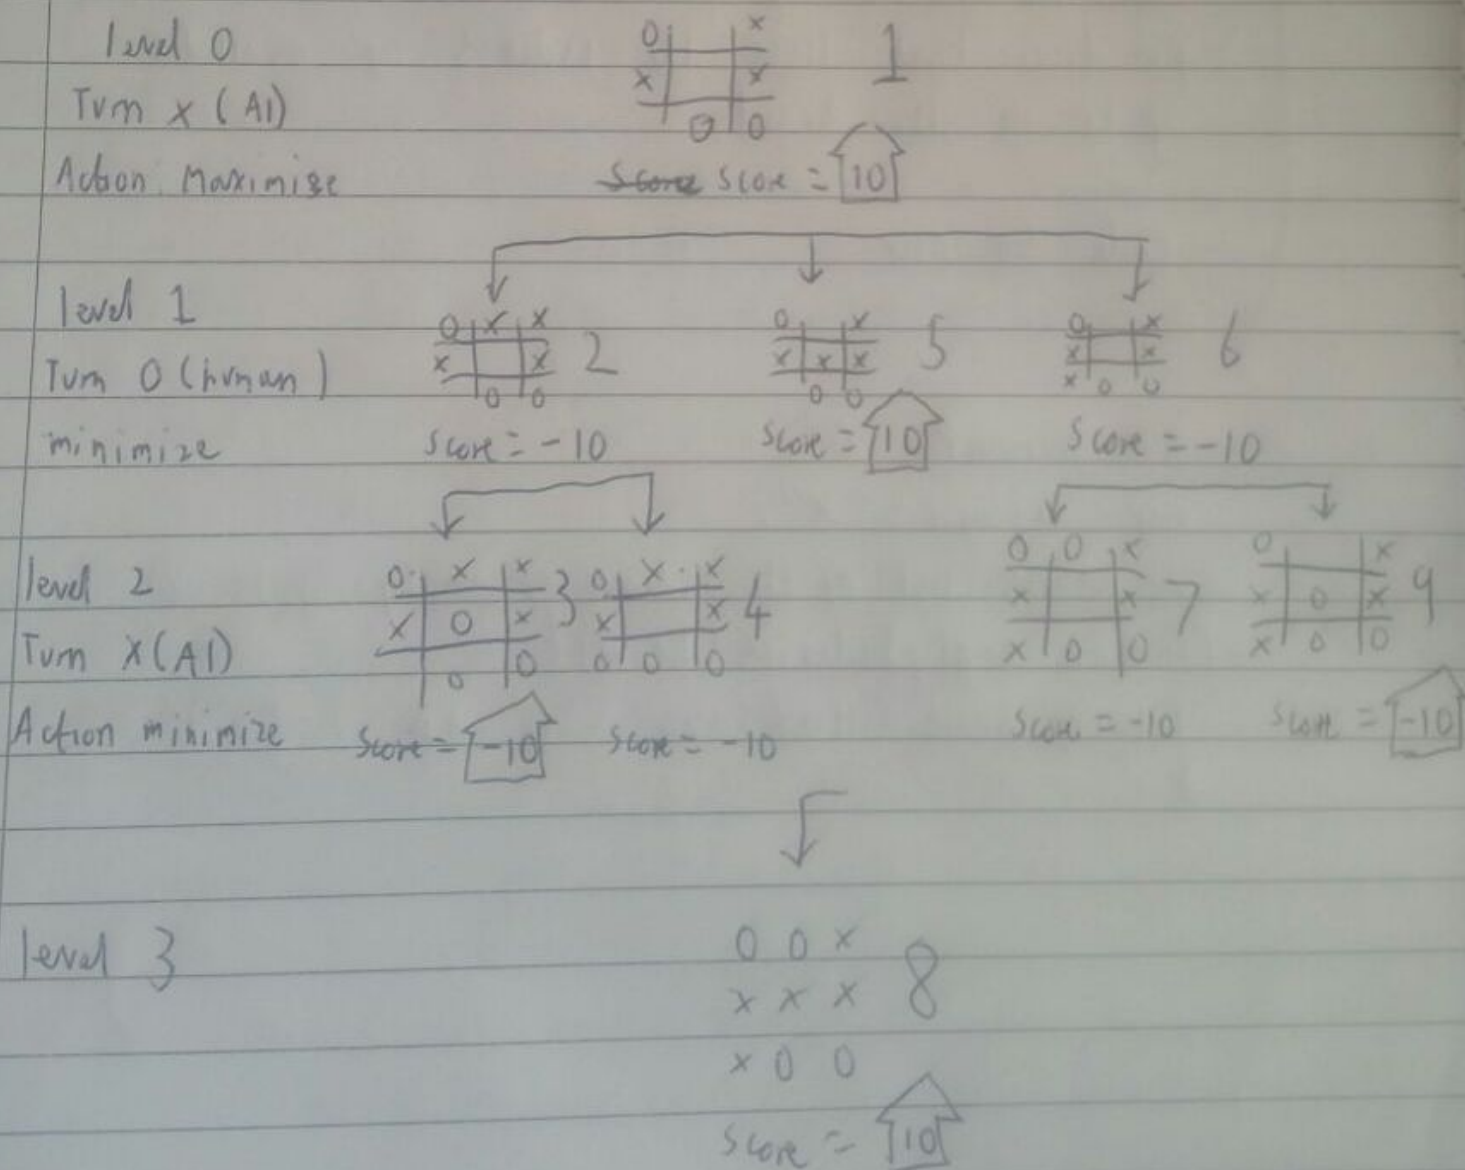 level 0
Turn x (AI)
Action: Maximise
O x
x x
O O
1
Score Score = 10
level 1
Turn O (human)
minimize
O x x
x x
O O
2
Score = -10
O x
x x x
O O
5
Score = 10
O x
x x
x O O
6
Score = -10
level 2
Turn X (AI)
Action minimize
O x x
X O x
O O
3
Score = -10
O X x
x x
O O O
4
Score = -10
O O x
x x
x O O
7
Score = -10
O x
x O x
x O O
9
Score = -10
level 3
O O x
x x x
x O O
8
Score = 10